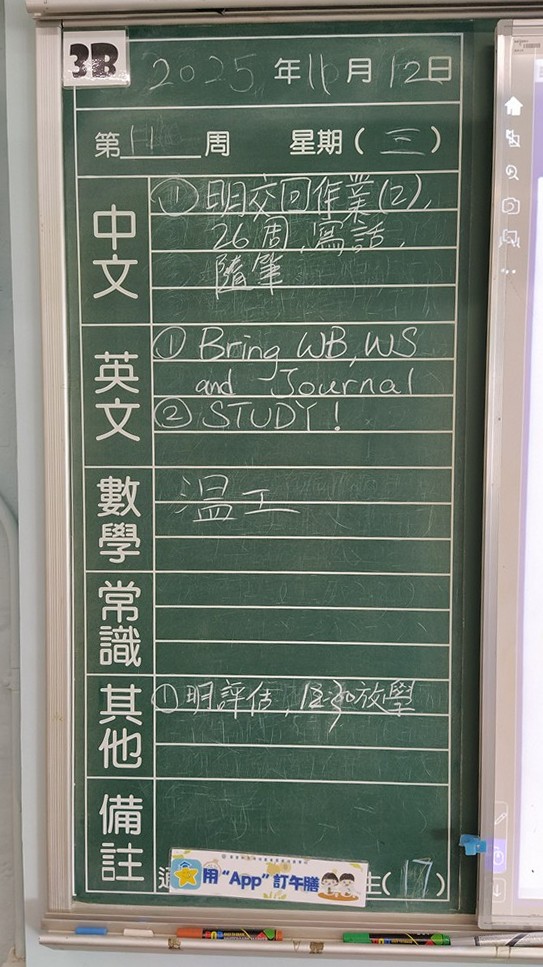 3B
2025 年 11 月 12 日
第 11 周 星期 ( 三 )
中文
① 明交回作業(2),
26周, 寫話,
隨筆
英文
① Bring WB, WS
and Journal
② STUDY!
數學
温工
常識
其他
① 明評估, 12:30放學
備註
用“App”訂午膳
(17)